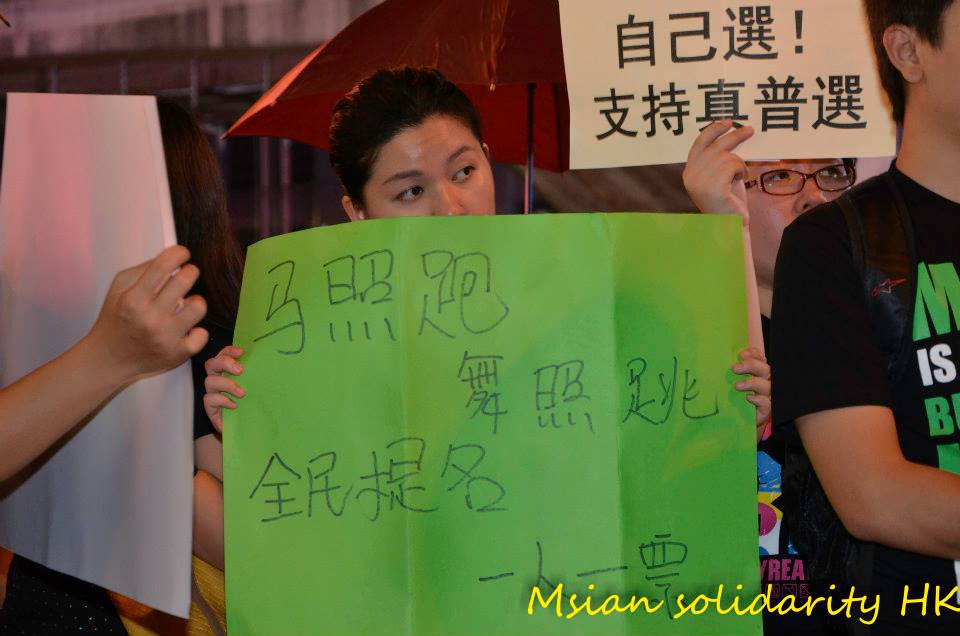 自己選！
支持真普選
马照跑
舞照跳
全民提名
一人一票
M
IS
BU
YREA
Msian solidarity HK